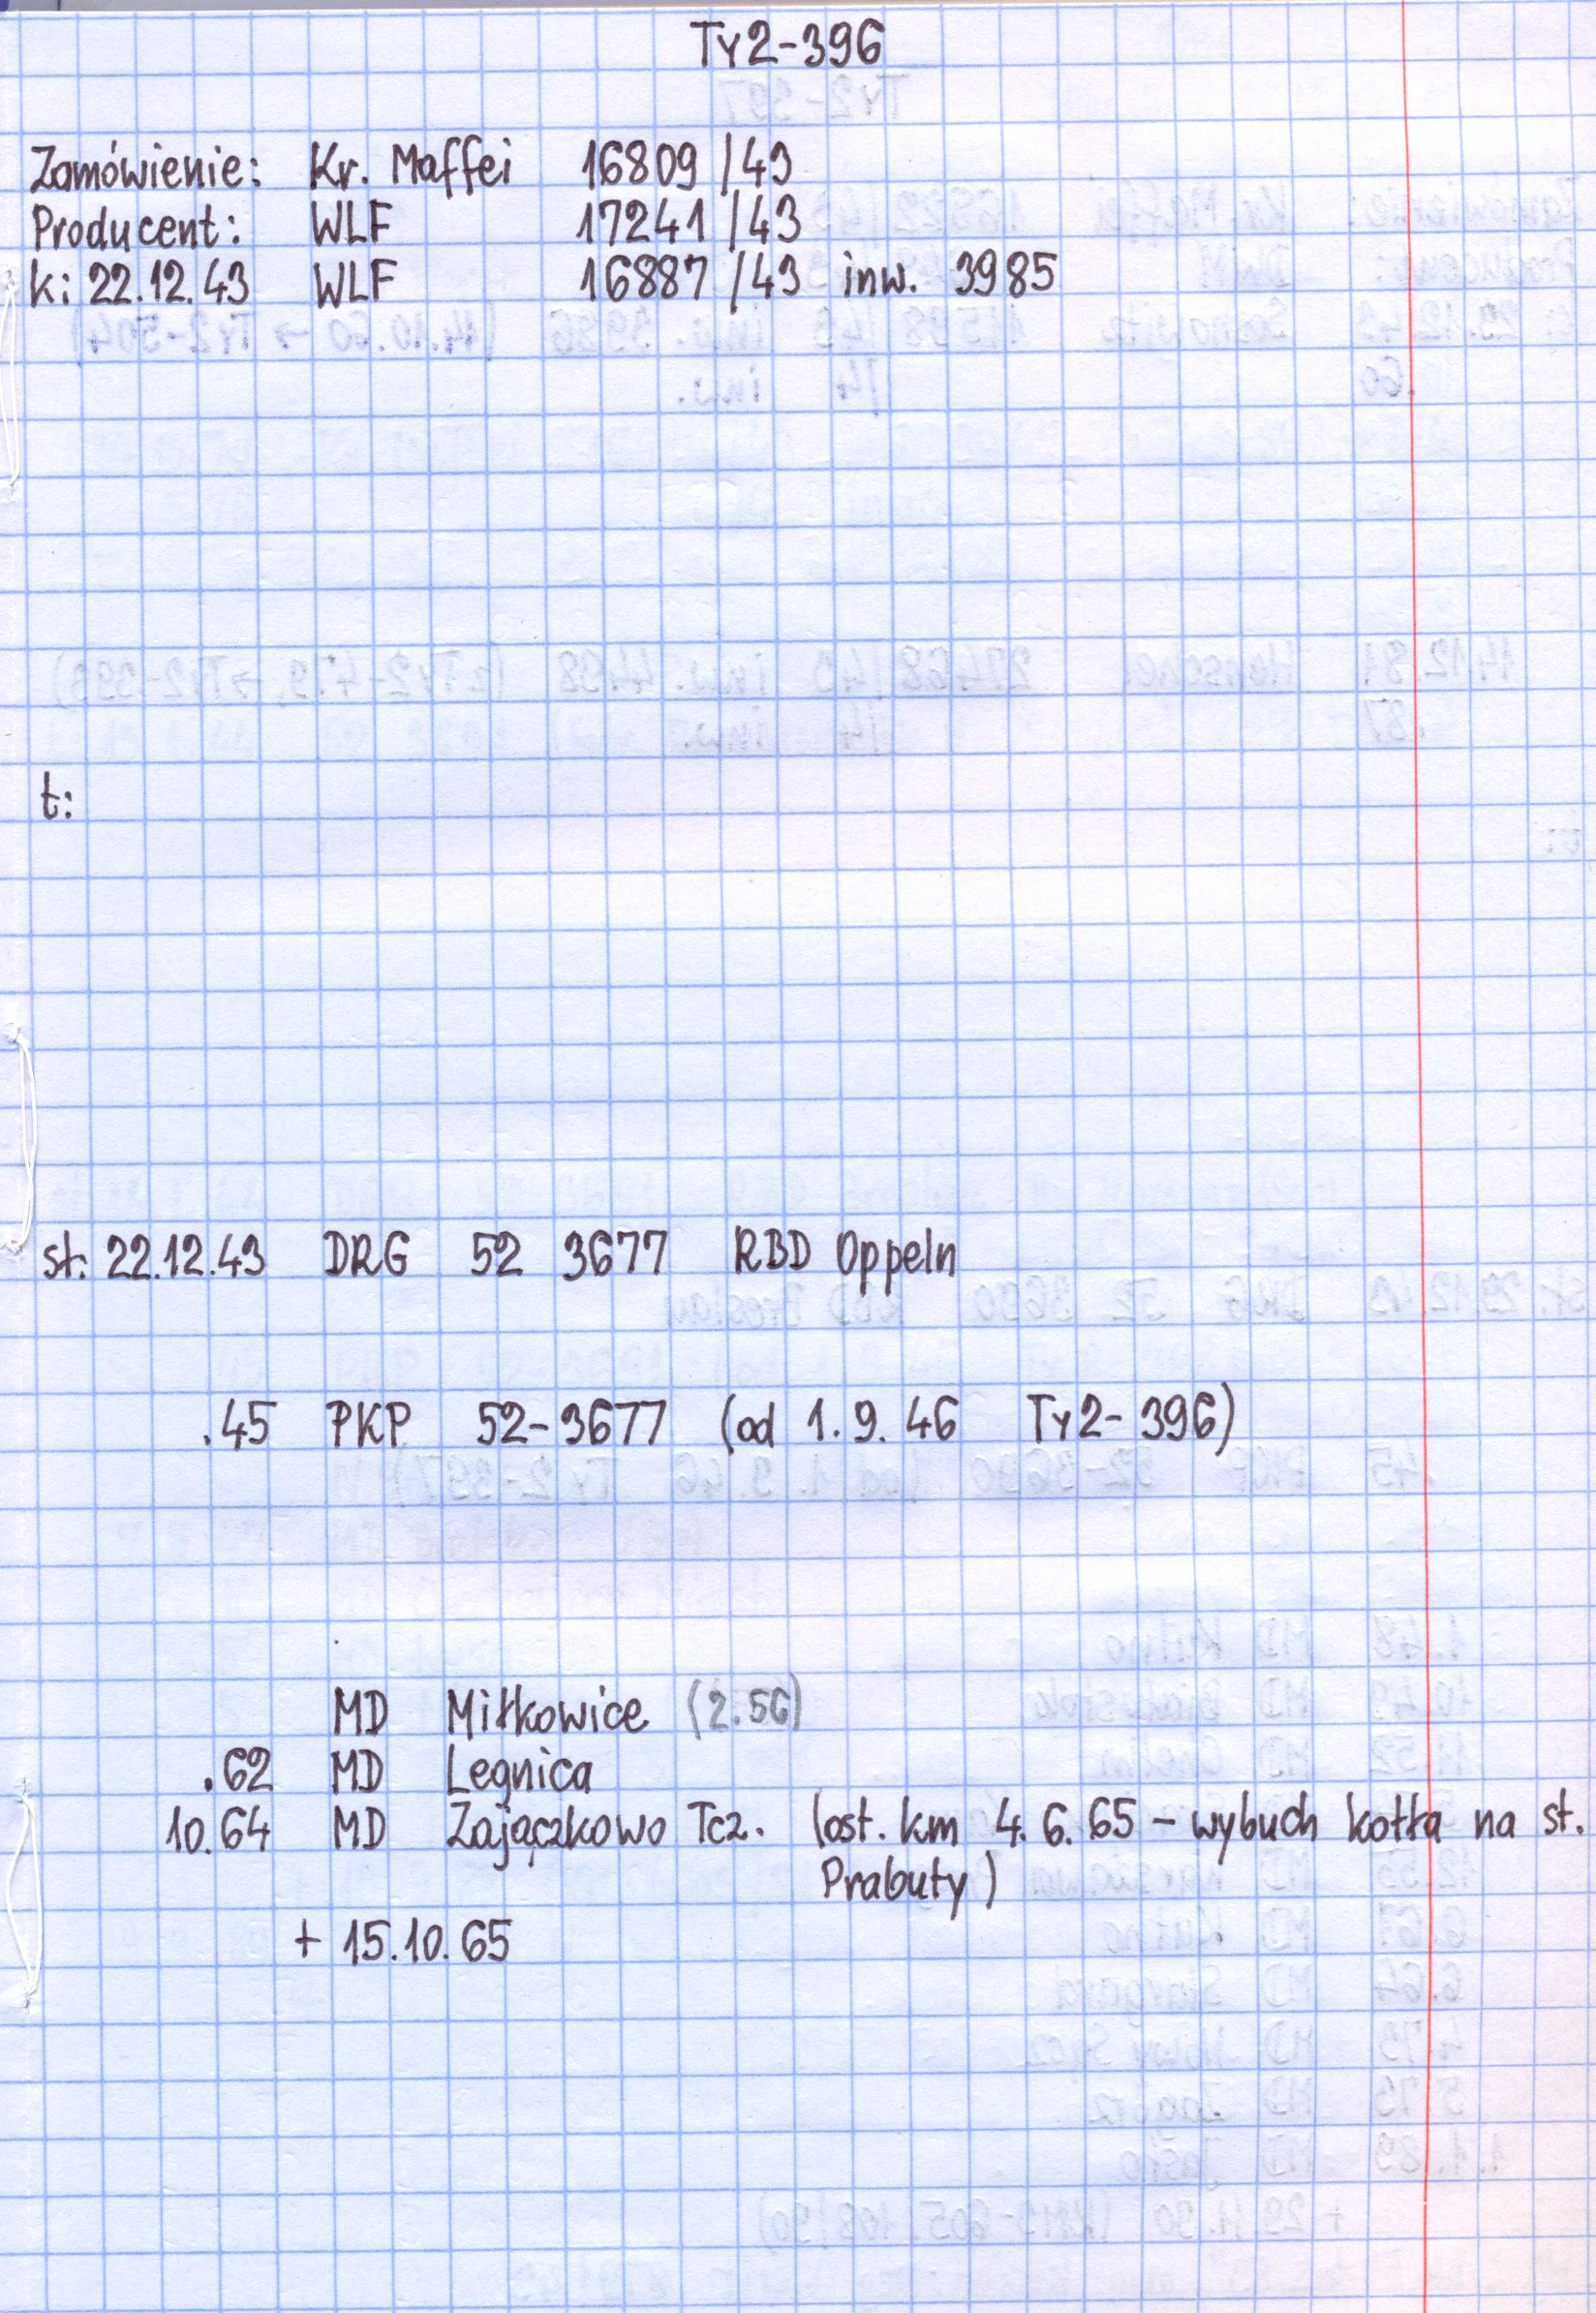 Ty2-396
Zamówienie: Kr. Maffei 16809/43
Producent: WLF 17241/43
k: 22.12.43 WLF 16887/43 inw. 3985
t:
st: 22.12.43 DRG 52 3677 RBD Oppeln
.45 PKP 52-3677 (od 1.9.46 Ty2-396)
MD Miłkowice (2.56)
.62 MD Legnica
10.64 MD Zajączkowo Tcz. (ost. km 4.6.65 – wybuch kotła na st.
Prabuty)
+ 15.10.65